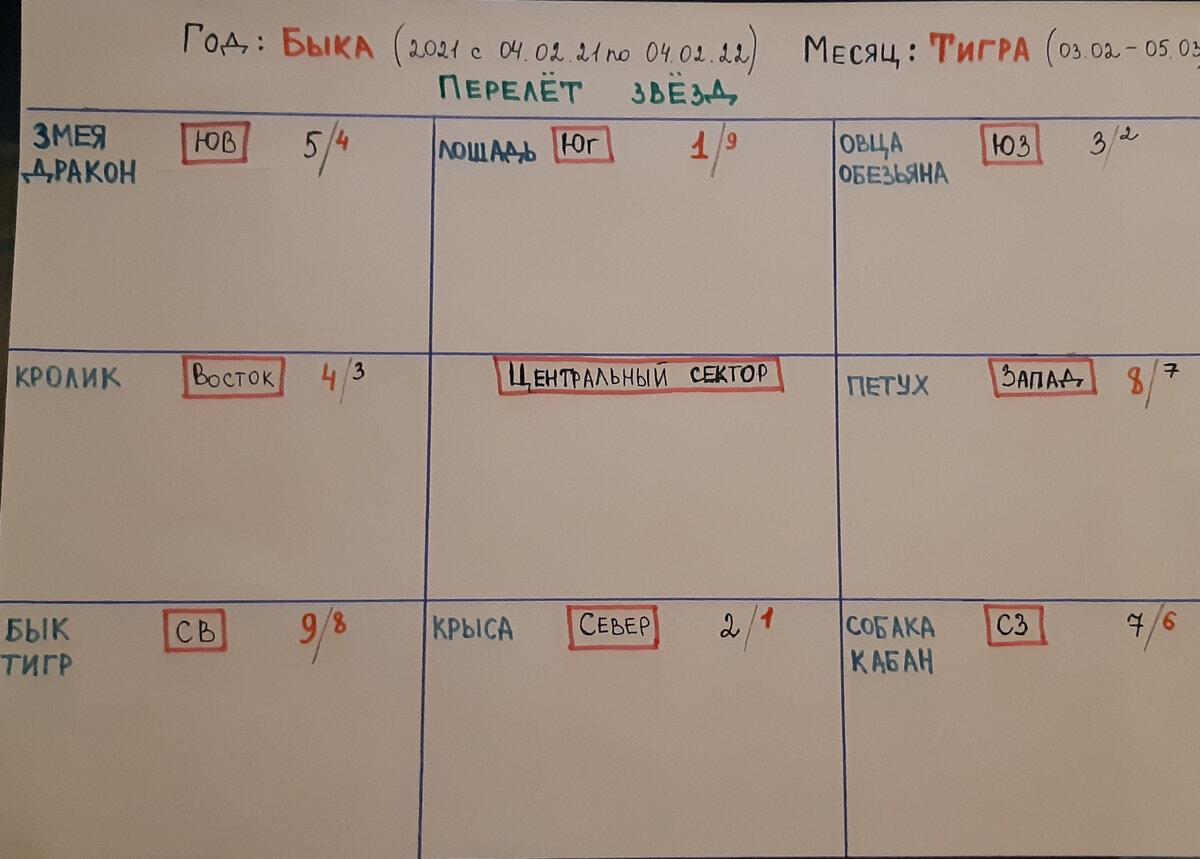 Год: Быка (2021 с 04.02.21 по 04.02.22) Месяц: Тигра (03.02 – 05.03
Перелёт звёзд
Змея ЮВ 5/4
Дракон
Лошадь Юг 1/9
Овца ЮЗ 3/2
Обезьяна
Кролик Восток 4/3
Центральный сектор
Петух Запад 8/7
Бык СВ 9/8
Тигр
Крыса Север 2/1
Собака СЗ 7/6
Кабан